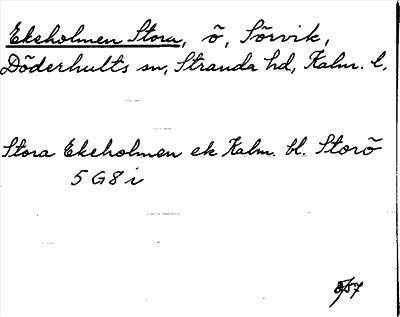 Ekeholmen Stora, ö, Sörvik,
Döderhults sn, Stranda hd, Kalm. l.
Stora Ekeholmen ek Kalm. bl. Storö
5 G 8 i